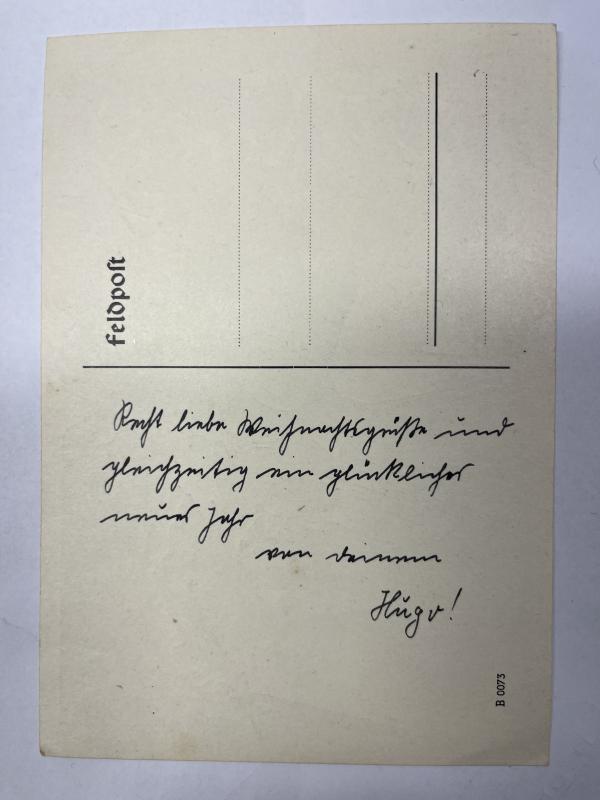 Feldpost
Recht liebe Weihnachtsgrüße und
gleichzeitig ein glückliches
neues Jahr
von deinem
Hugo!
B 0073